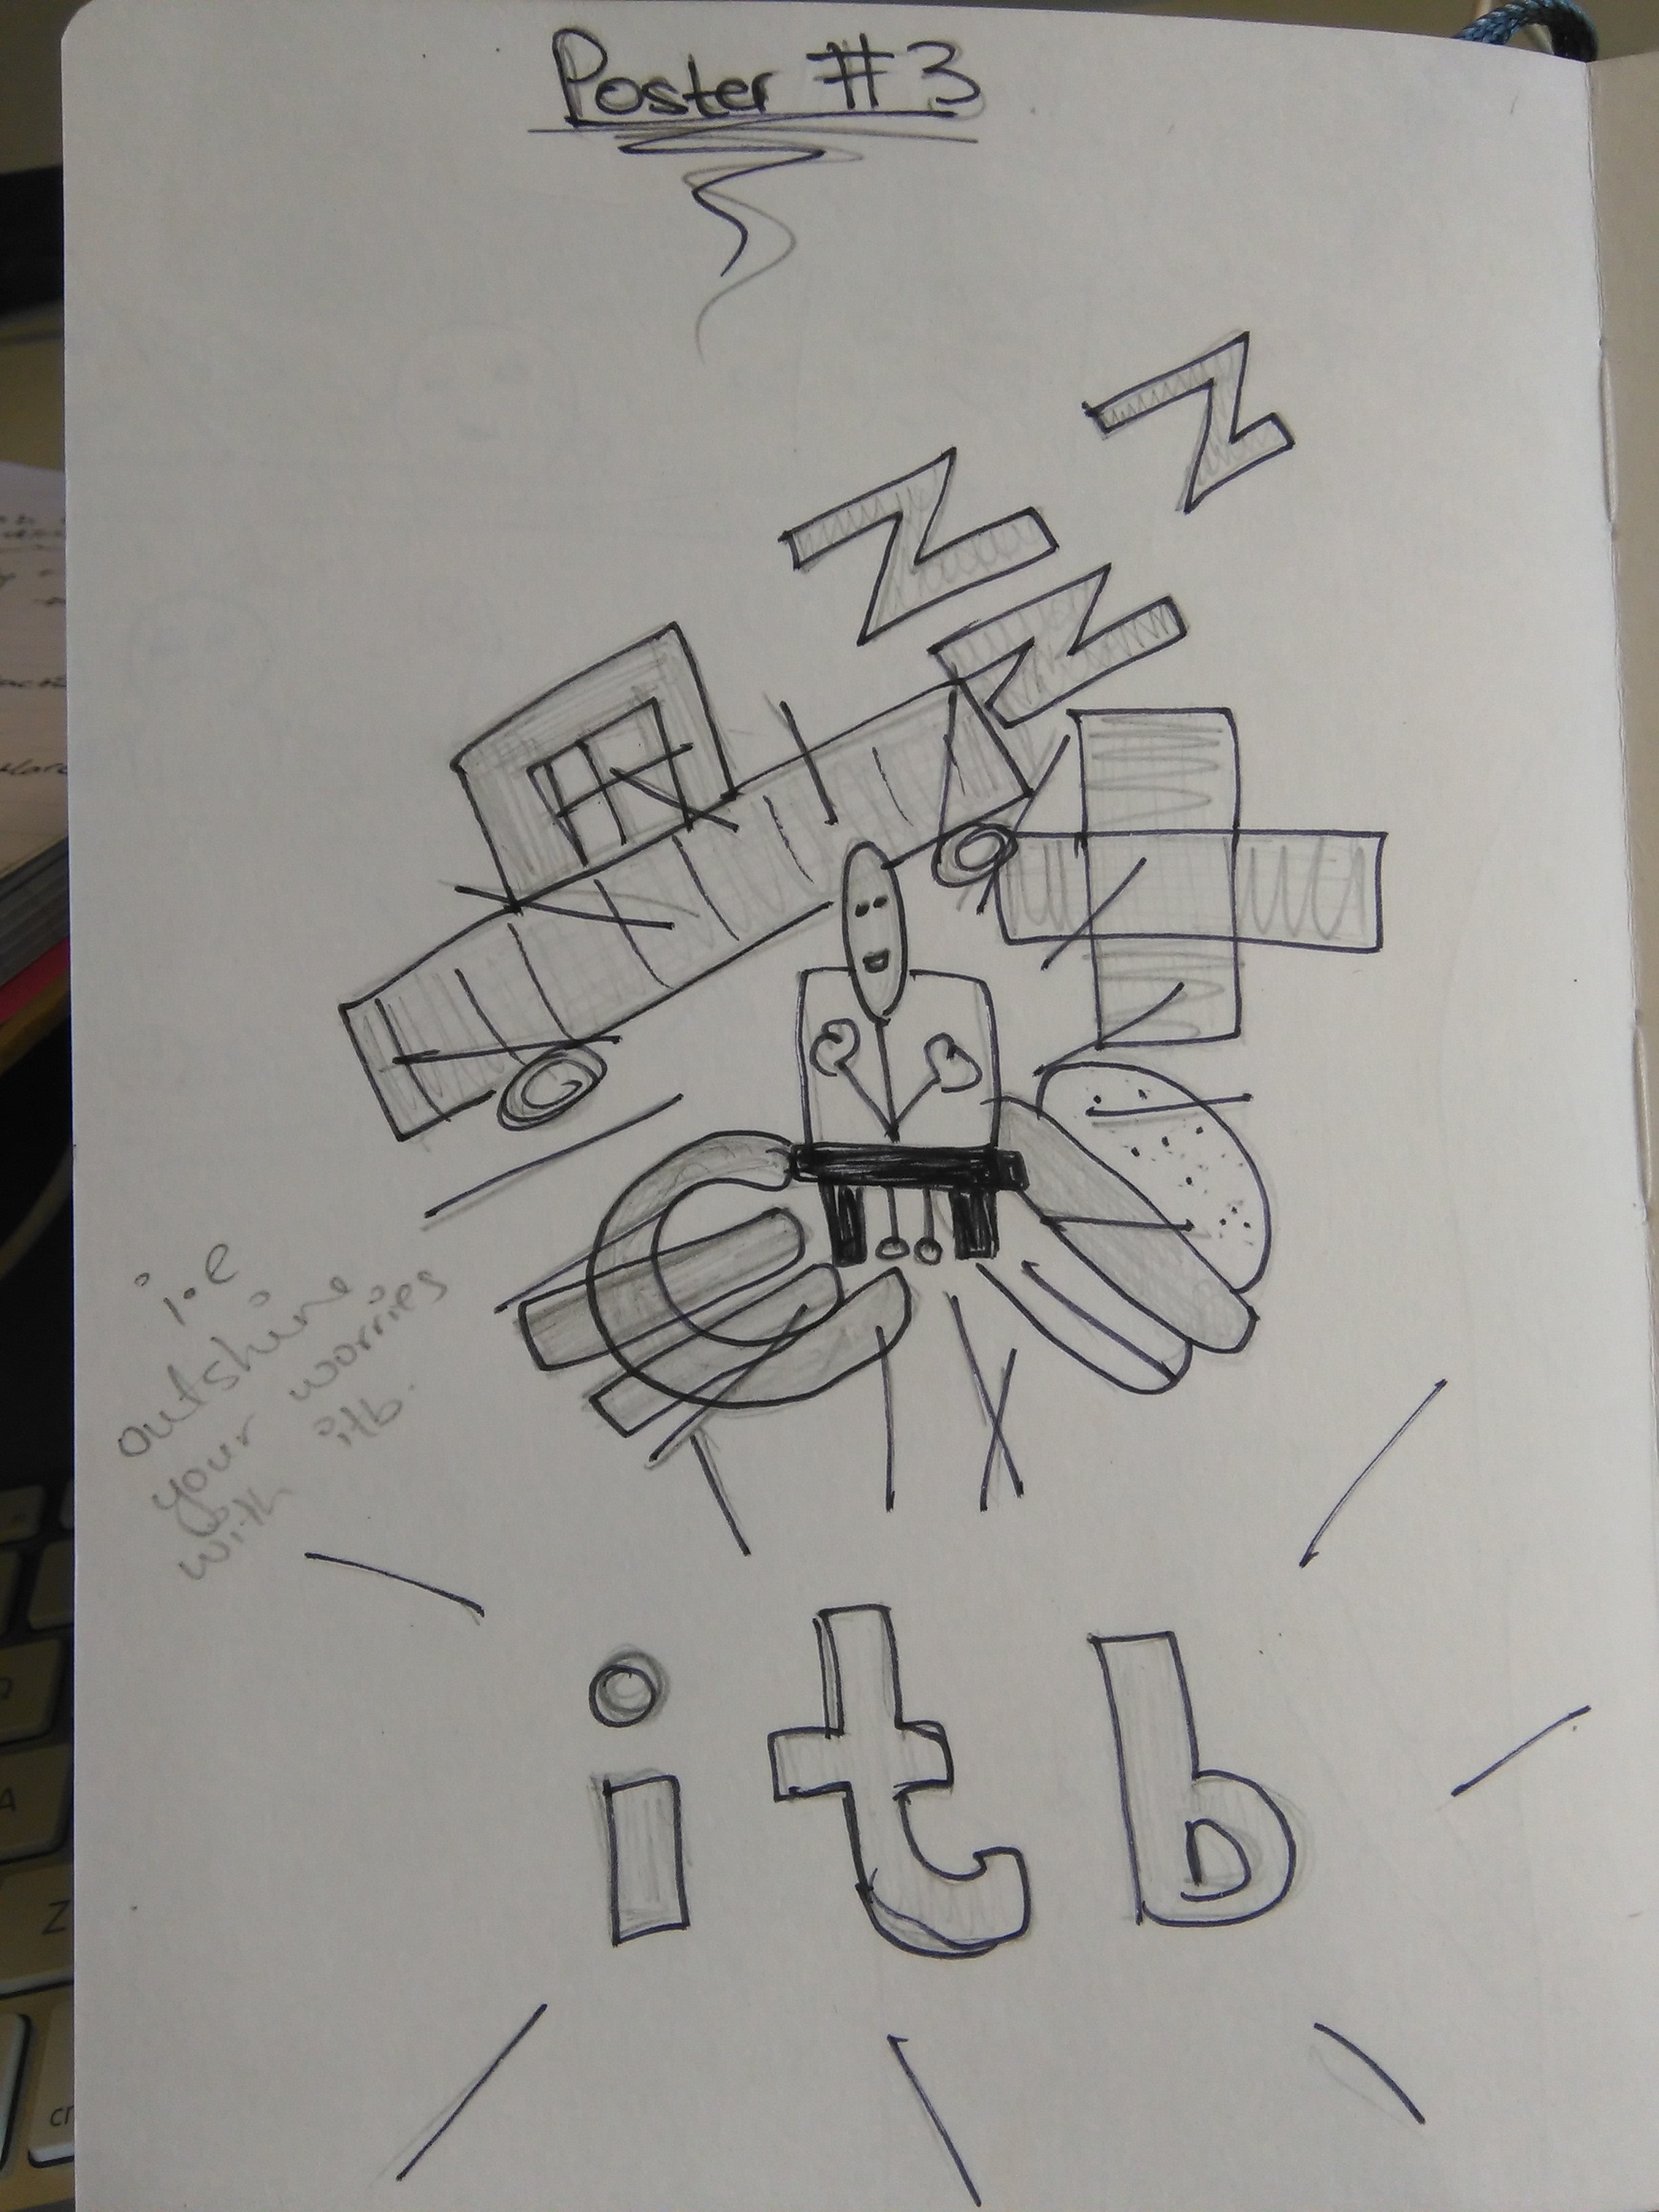 Poster #3
Z
Z
Z
i.e
outshine
your worries
with itb.
i t b
Z
A